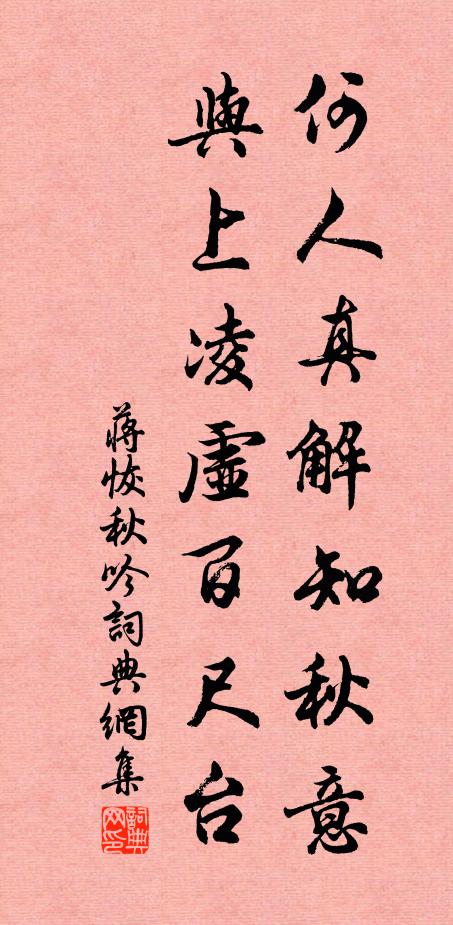 何人真解知秋意
與上凌虛百尺台
蔣恢秋吟詞典網集
詞典
网印